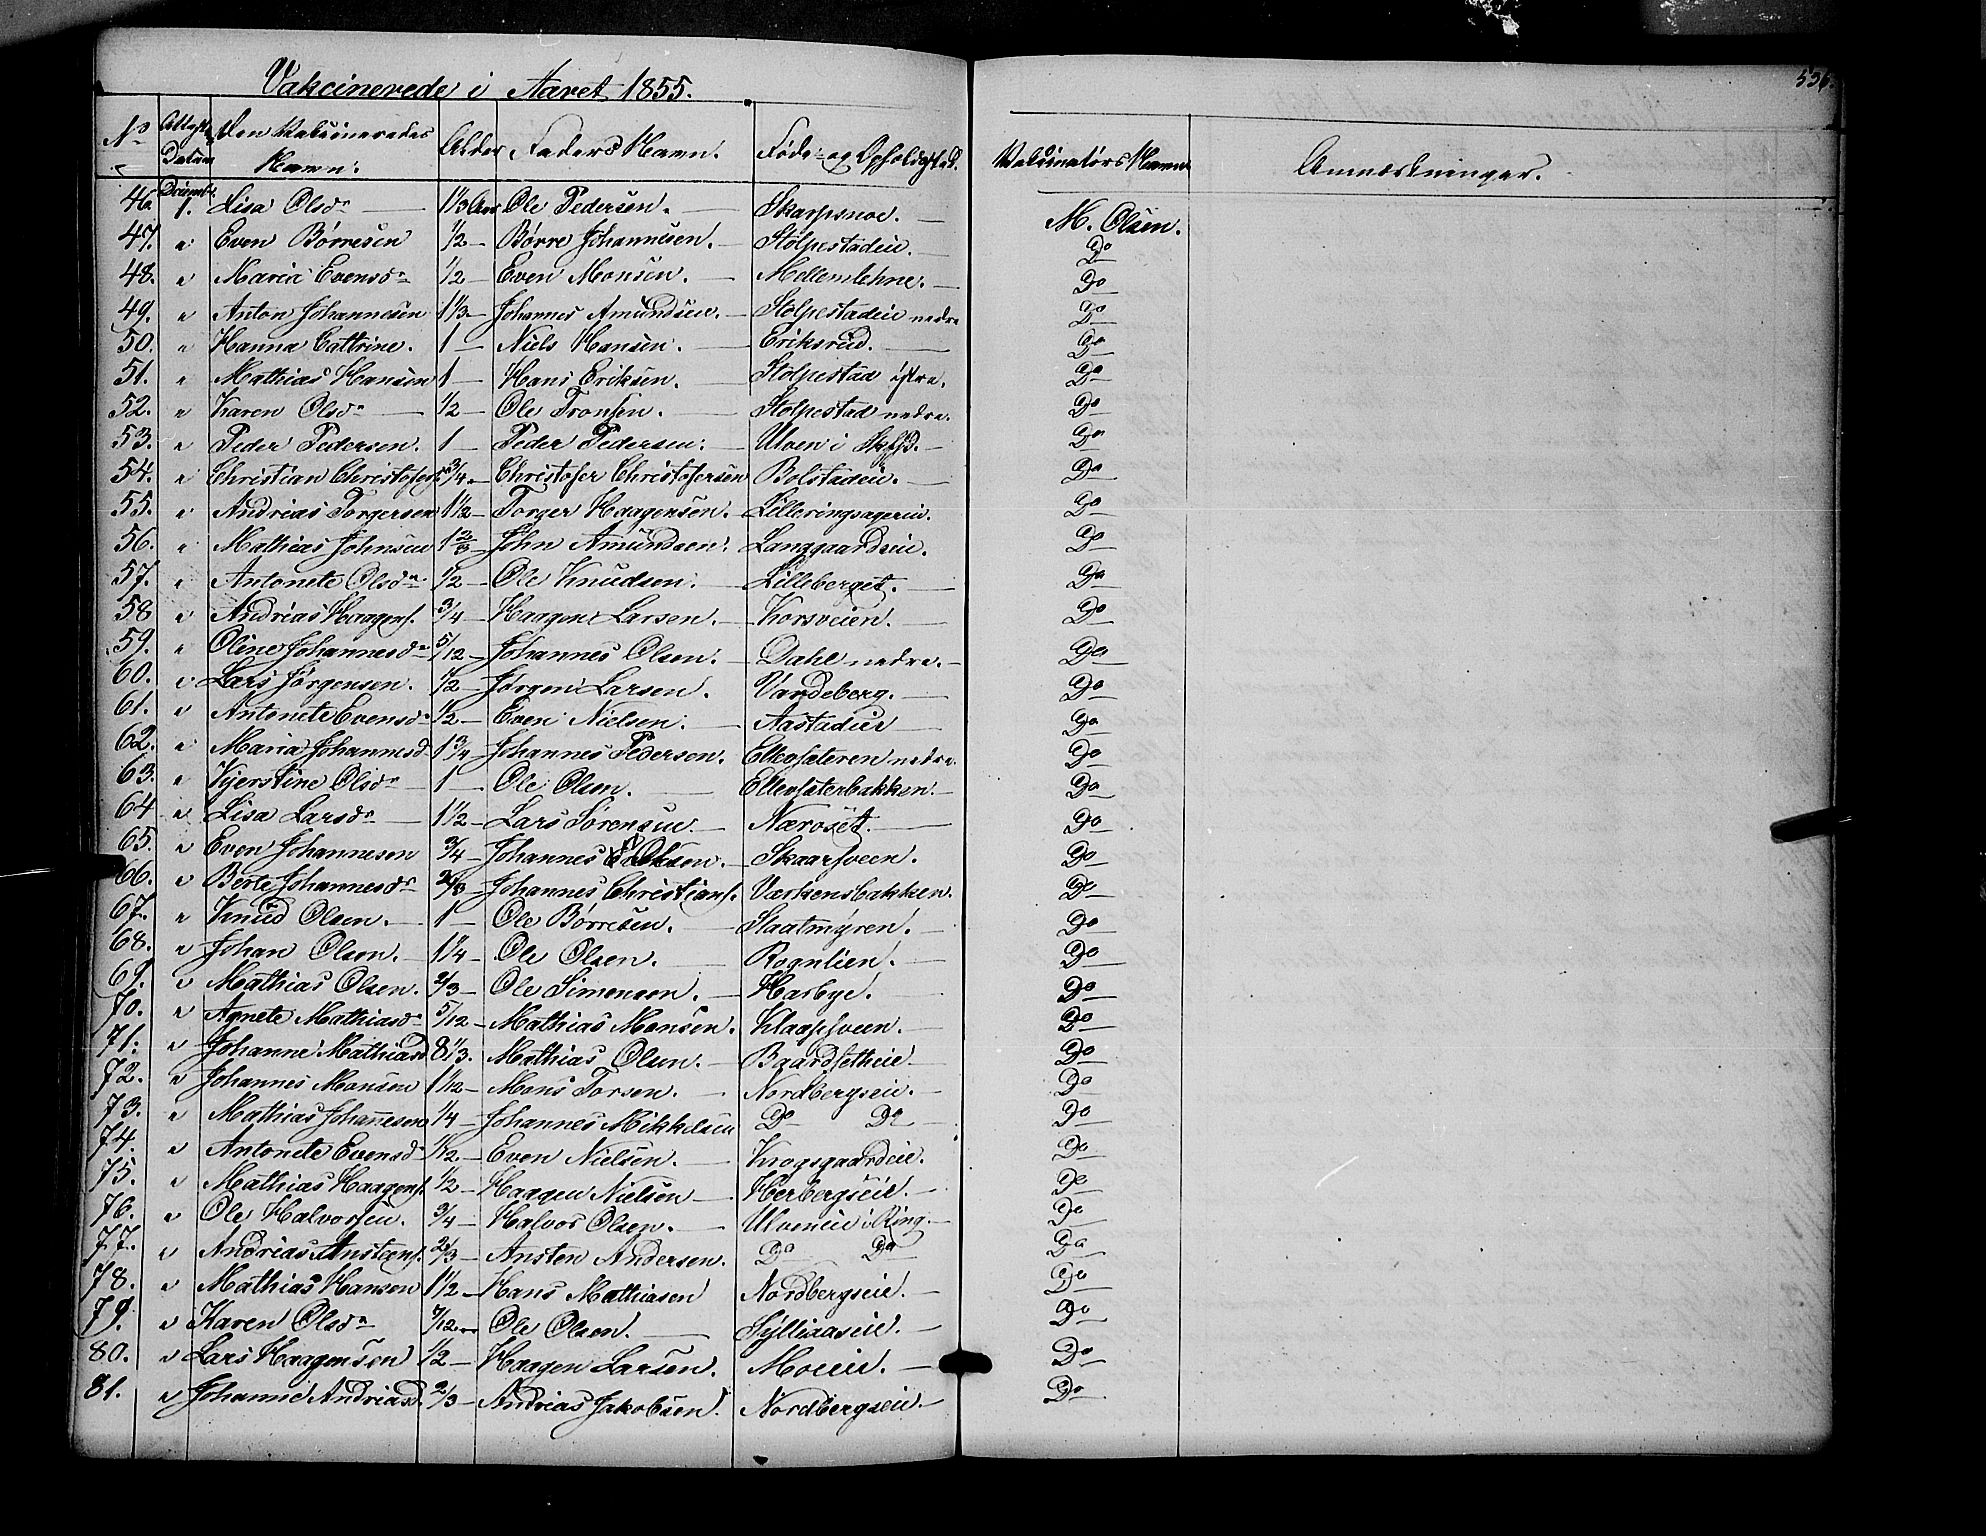 Vakcinerede i Aaret 1855.
536.
No Attests Datum Den Vakcineredes Navn: Alder Faders Navn. Føde- og Opholdssted. Vakcinatørs Navn Anmærkninger.
46. Decemb. 1. Lisa Olsdr 1 1/3 Aar Ole Pedersen. Skarpsnoe. M. Olsen.
47. " Even Børresen 1/2 Børre Johannesen. Stolpestadeie. Do
48. " Maria Evensdr 1/2 Even Monsen. Mellemlehne. Do
49. " Anton Johannesen 1 1/3 Johannes Amundsen. Stolpestadeie nedre Do
50. " Hanna Cathrine. 1 Niels Hansen. Eriksrud. Do
51. " Mathias Hansen 1 Hans Eriksen. Stolpestad østre. Do
52. " Karen Olsdr 1/2 Ole Tronsen. Stolpestad nedre. Do
53. " Peder Pedersen. 1 Peder Pedersen. Ulven i Do
54. " Christian Christofers. 3/4 Christofer Christofersen Bolstadeie. Do
55. " Andrias Torgersen 1 1/2 Torger Haagensen. Lilleringsageren. Do
56. " Mathias Johnsen 1 2/3 John Amundsen. Langgaardseie. Do
57. " Antonete Olsdr 1/2 Ole Knudsen. Lilleberget. Do
58 " Andrias Haagens. 3/4 Haagen Larsen. Korsveien. Do
59. " Oline Johannesdr 5/12 Johannes Olsen. Dahl nedre. Do
60. " Lars Jørgensen. 1/2 Jørgen Larsen. Vardeberg. Do
61. " Antonete Evensdr 1/2 Even Nielsen. Aastadeie Do
62. " Maria Johannesd 1 3/4 Johannes Pedersen. Ellevsæteren nedre. Do
63. " Kjerstine Olsdr 1 Ole Olsen. Ellevsæterbakken. Do
64 " Lisa Larsdr 1 1/2 Lars Sørensen. Næroset. Do
65. " Even Johannesen 3/4 Johannes Olsen. Skaarsveen. Do
66. " Berte Johannesdr 2/3 Johannes Christians. Værkensbakken. Do
67. " Knud Olsen. 1 Ole Børresen. Staalmyren. Do
68. " Johan Olsen. 1 1/4 Ole Olsen. Rognlien. Do
69. " Mathias Olsen. 2/3 Ole Simensen. Hasbye. Do
70. " Agnete Mathiasdr 5/12 Mathias Monsen. Klaapsveen. Do
71. " Johanne Mathiasd. 8 1/3. Mathias Olsen. Baardsetheie Do
72. " Johannes Monsen 1 1/12 Mons Torsen. Nordbergseie. Do
73. " Mathias Johanesen 1/4 Johannes Mikkelsen Do Do Do
74. " Antonete Evensd 1/12 Even Nielsen. Krogsgaardeie. Do
75. " Mathias Haagens. 1/2 Haagen Nielsen Herbergseie. Do
76. " Ole Halvorsen. 3/4 Halvor Olsen. Ulveneie i Ring. Do
77. " Andrias Anstens. 2/3 Ansten Andersen. Do Do Do
78. " Mathias Hansen 1 1/2 Hans Mathiasen Nordbergseie. Do
79. " Karen Olsdr 7/12 Ole Olsen. Do
80. " Lars Haagensen 1/2 Haagen Larsen. Moeie. Do
81. " Johanne Andriasd. 2/3 Andrias Jakobsen. Nordbergseie. Do